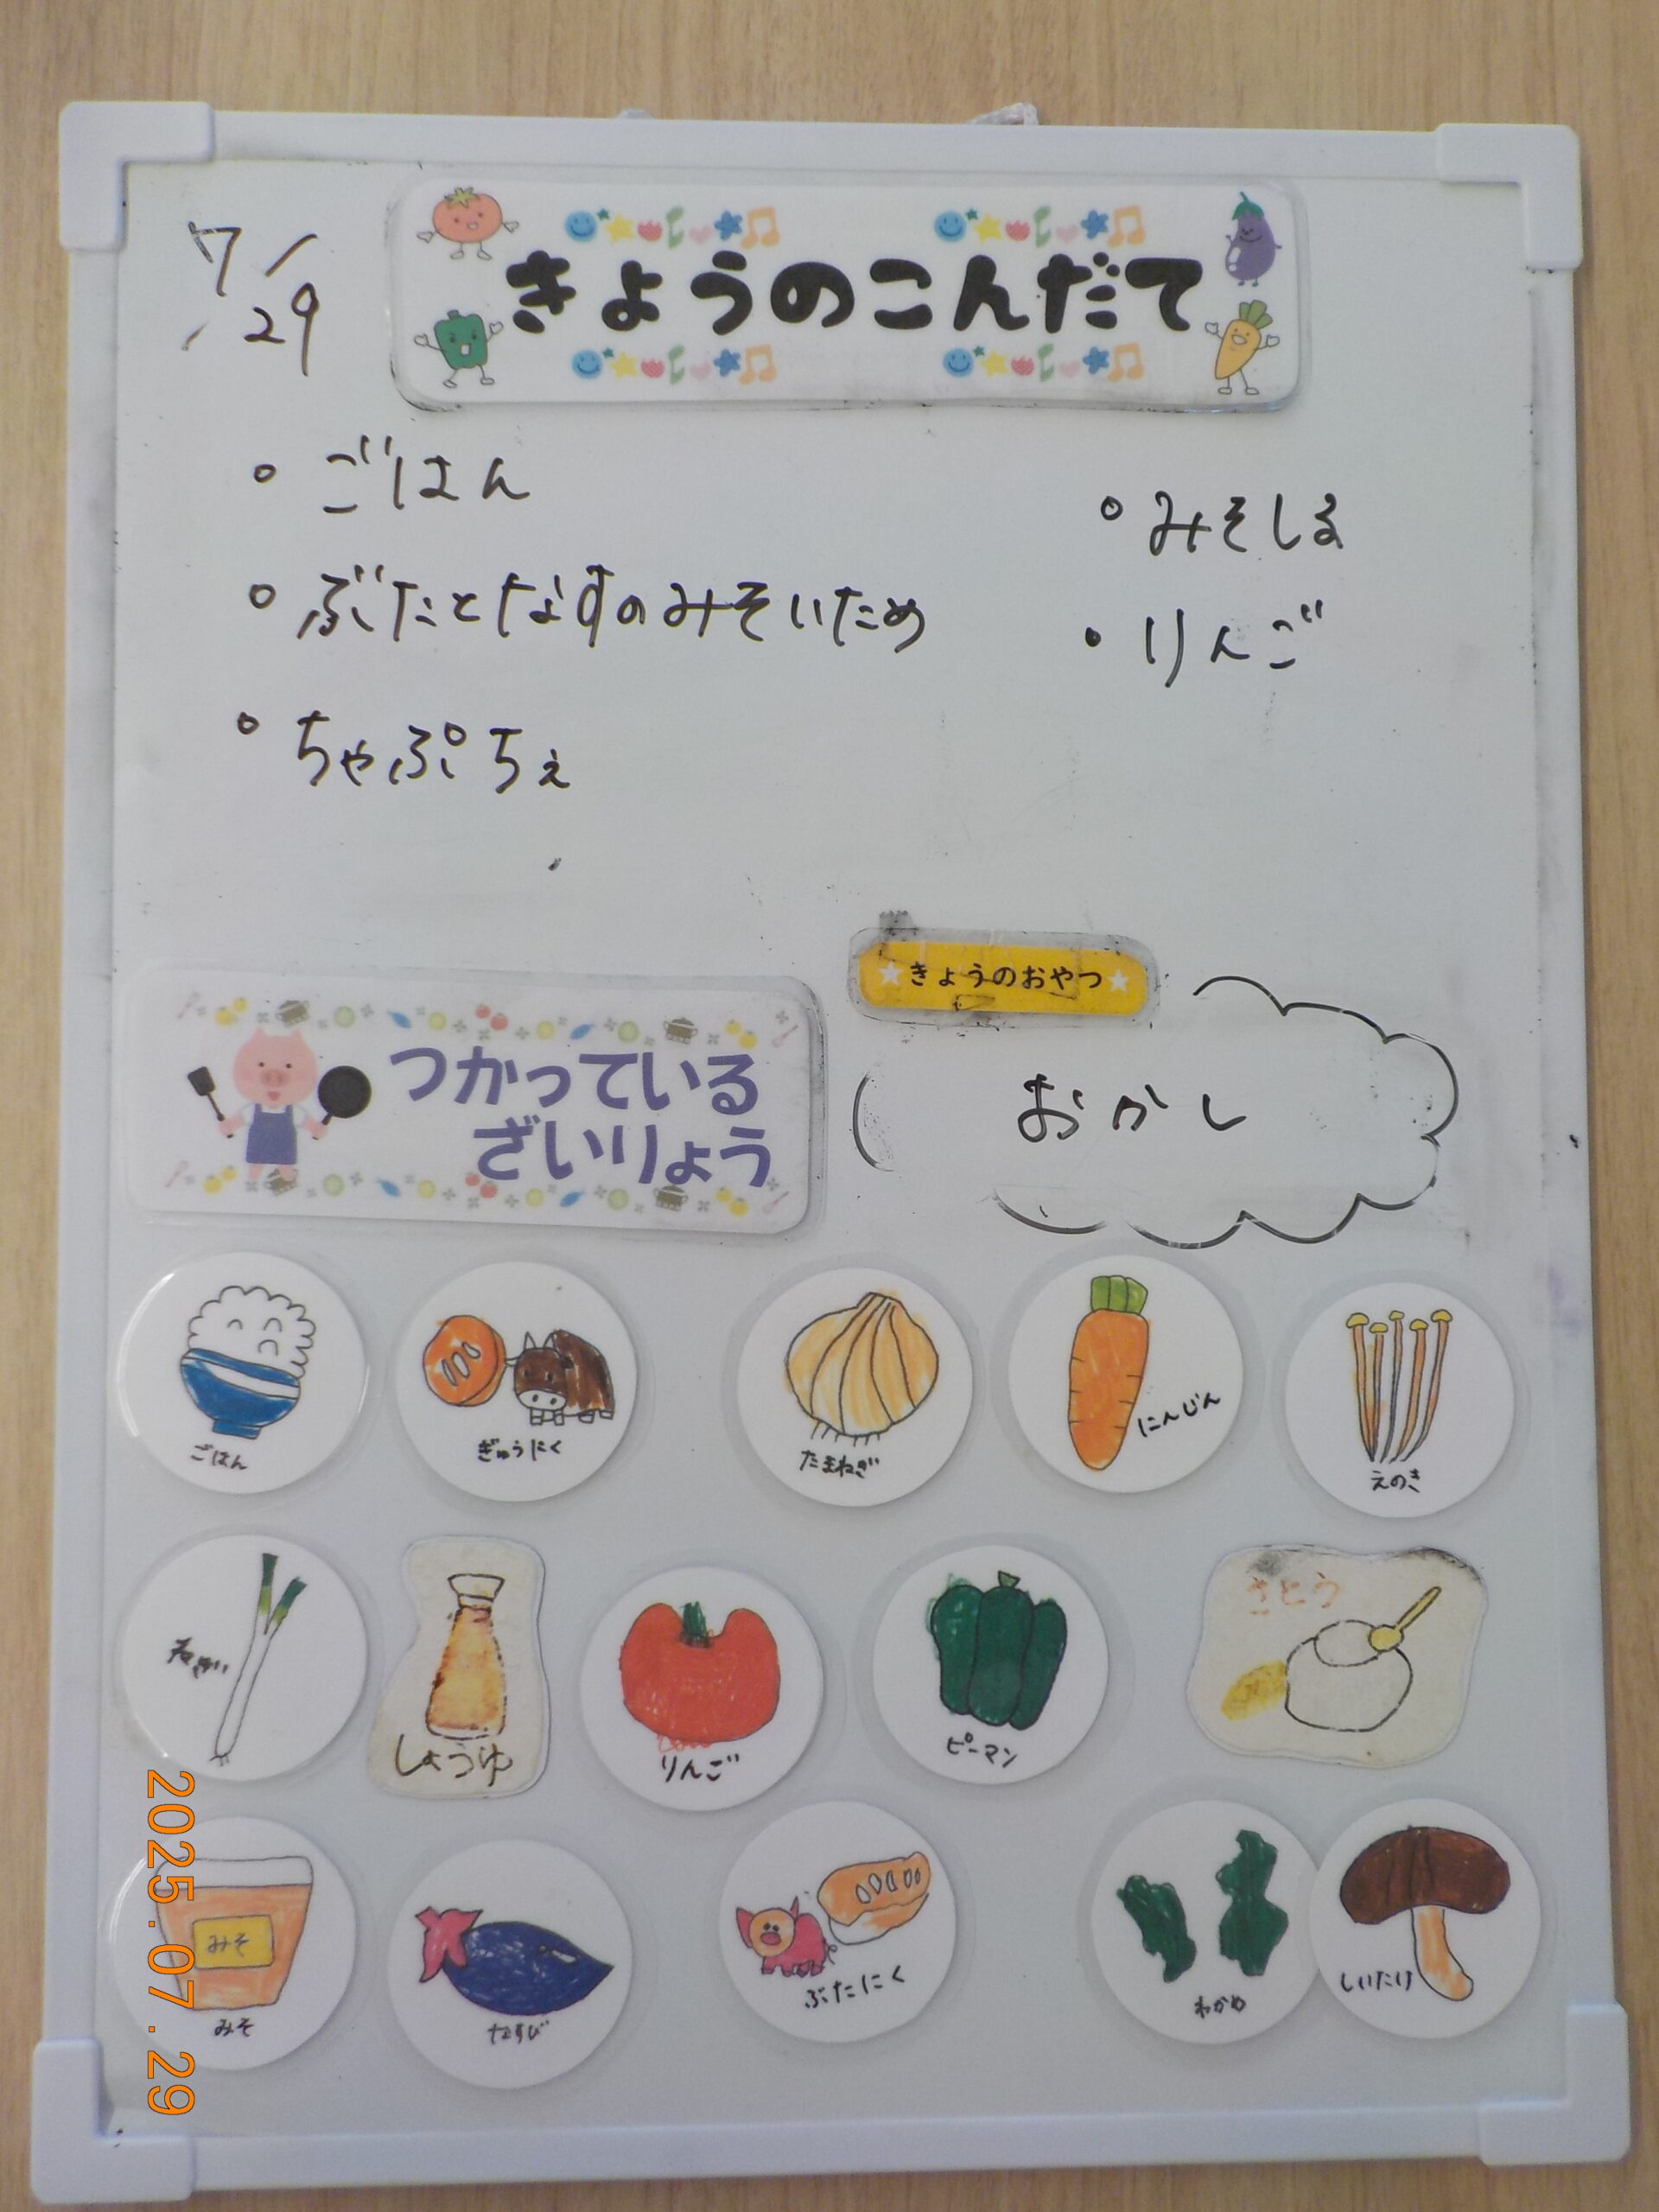 7/29
きょうのこんだて
ごはん
ぶたとなすのみそいため
ちゃぷちぇ
みそしる
りんご
きょうのおやつ
おかし
つかっている
ざいりょう
ごはん
ぎゅうにく
たまねぎ
にんじん
えのき
ねぎ
しょうゆ
りんご
ピーマン
さとう
みそ
みそ
なすび
ぶたにく
わかめ
しいたけ
2025.07.29